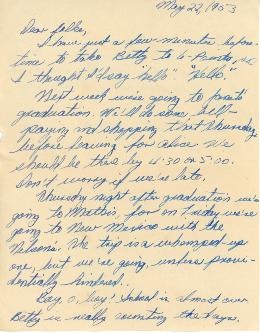 May 22, 1953
Dear folks,
I have just a few minutes before
time to take Betty to
I thought I'd say "hello". "Hello."
Next week we're going to
graduation. We'll do some bill-
paying and shopping that Thursday
before leaving for Alice. We
should be there by 4:30 or 5:00.
Don't worry if we're late.
Thursday night after graduation we're
going to Mattie's, for on Friday we're
going to New Mexico with the
Nelsons. The trip is a whomped-up
one, but we're going, unless provi-
dentially hindered.
Boy, o, boy! School is almost over
Betty is really counting the days.